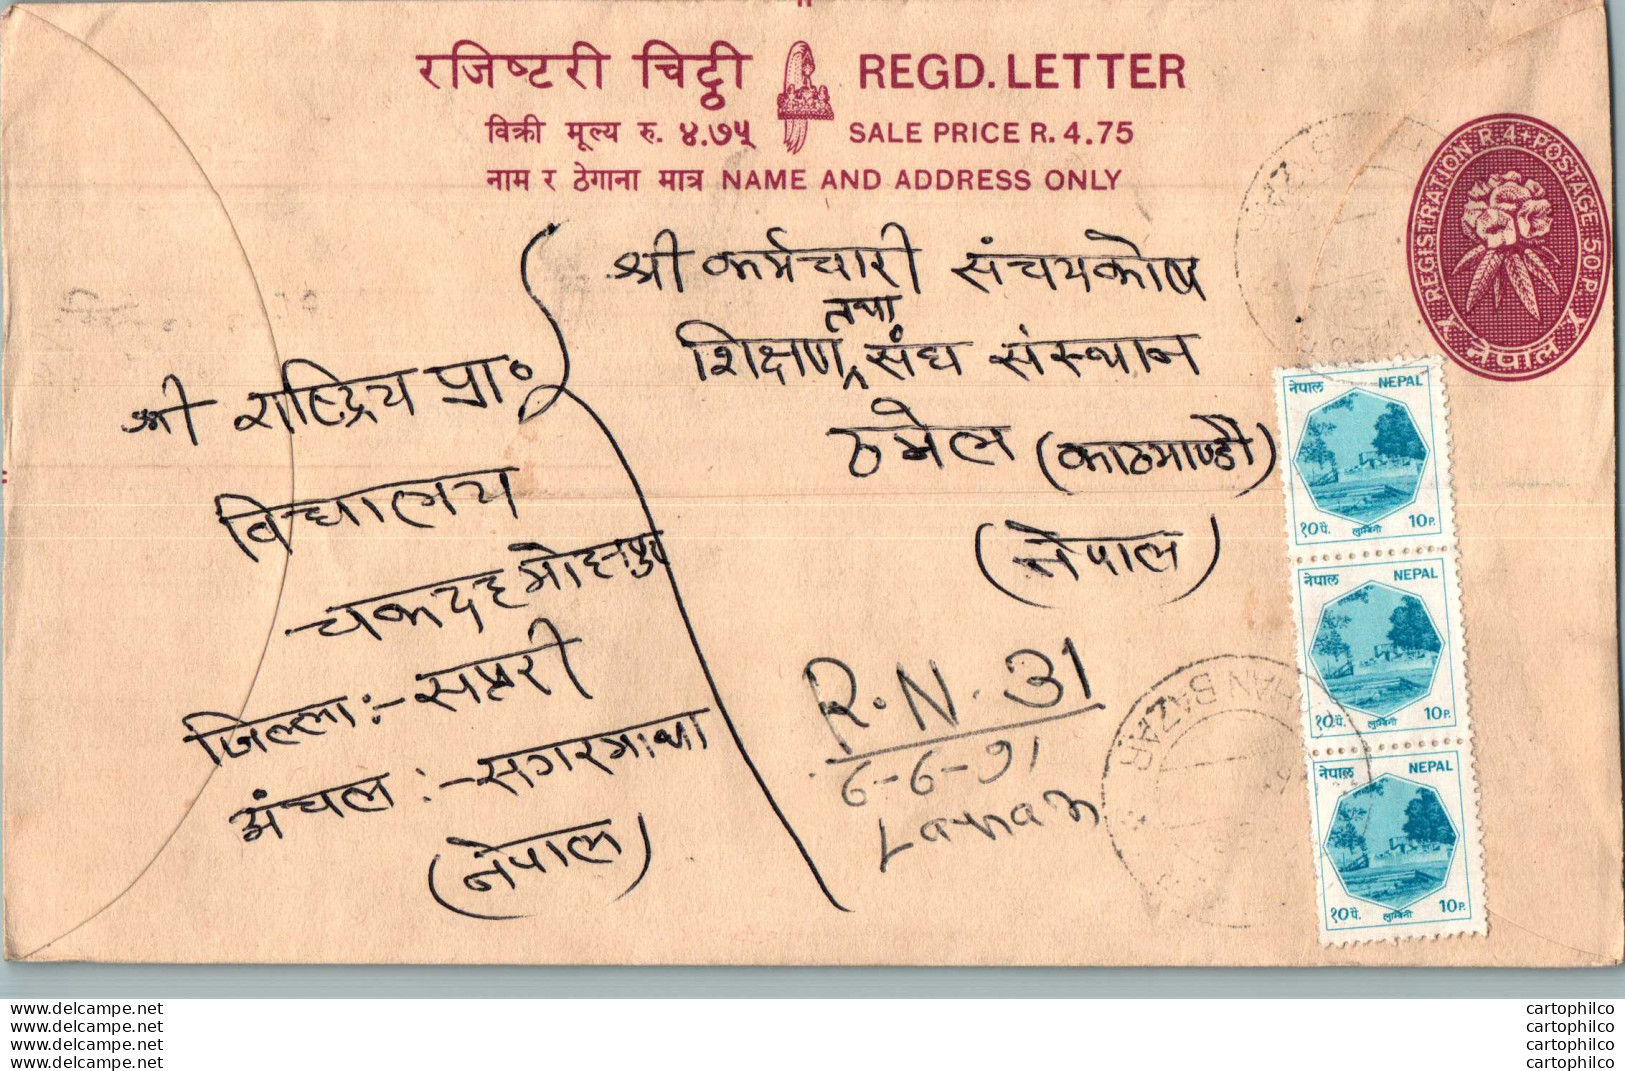 रजिष्टरी चिट्ठी REGD. LETTER
विक्री मूल्य रु. ४.७५ SALE PRICE R. 4.75
नाम र ठेगाना मात्र NAME AND ADDRESS ONLY
REGISTRATION R. 4+POSTAGE 50 P.
नेपाल
श्री कर्मचारी संचयकोष
तथा
शिक्षण संघ संस्थान
ठमेल (काठमाण्डौ)
(नेपाल)
श्री राष्ट्रिय प्रा०
विद्यालय
चकदहमोहनपुर
जिल्ला:- सप्तरी
अंचल:- सगरमाथा
(नेपाल)
R.N. 31
6-6-91
Lahan
HAN BAZAR
नेपाल NEPAL
१० पै. लुम्बिनी 10 P.
नेपाल NEPAL
१० पै. लुम्बिनी 10 P.
नेपाल NEPAL
१० पै. लुम्बिनी 10 P.
www.delcampe.net cartophilco
www.delcampe.net cartophilco
www.delcampe.net cartophilco
www.delcampe.net cartophilco